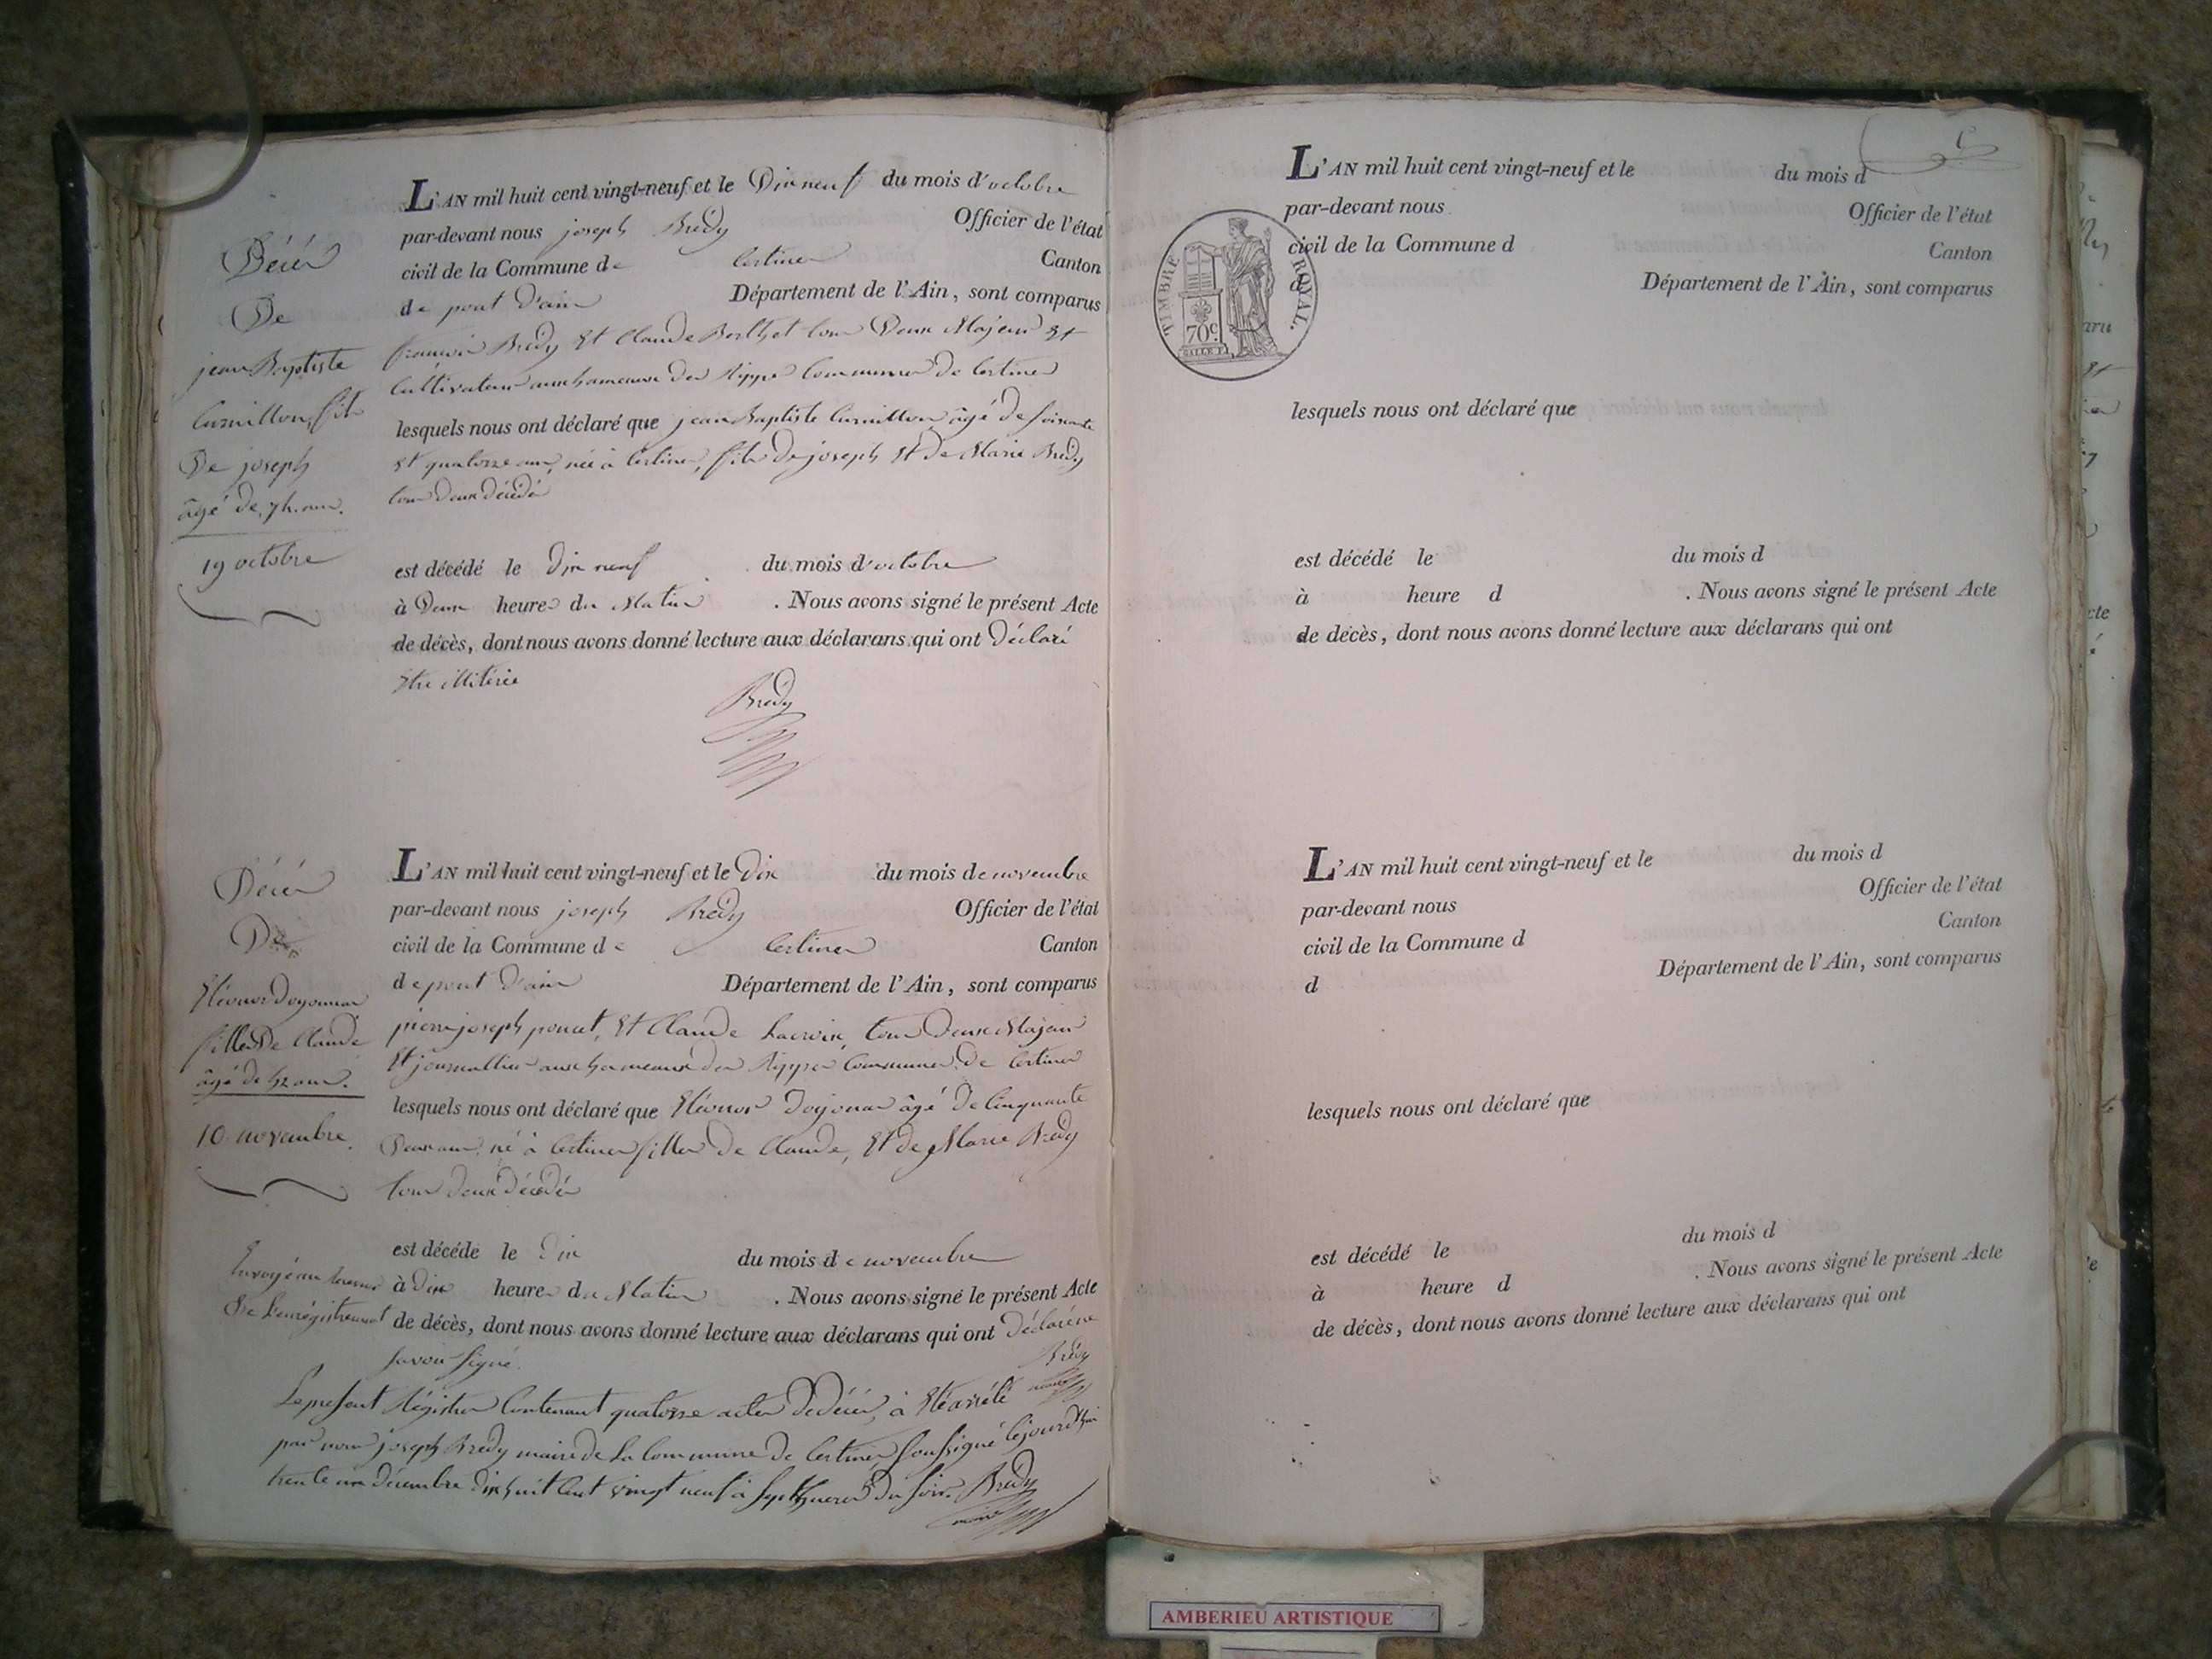 L'AN mil huit cent vingt-neuf et le Dix neuf du mois d'octobre
par-devant nous joseph Bredy Officier de l'état
civil de la Commune de Certines Canton
de pont d'ain Département de l'Ain, sont comparus
françois Bredy Et Claude Berthet tous Deux Majeurs Et
Cultivateurs aux hameaux des Rippes Commune De Certines
lesquels nous ont déclaré que jean Baptiste Curnillon âgé De soixante
Et quatorze ans, née à Certines, fils De joseph Et De Marie Bredy
tous Deux décédés
est décédé le Dix neuf du mois d'octobre
à Deux heures du Matin . Nous avons signé le présent Acte
de décès, dont nous avons donné lecture aux déclarans qui ont Déclaré
Etre illitérés
Bredy
Décés
De
jean Baptiste
Curnillon, fils
De joseph
âgé de 74. ans.
19 octobre
L'AN mil huit cent vingt-neuf et le Dix du mois de novembre
par-devant nous joseph Bredy Officier de l'état
civil de la Commune de Certines Canton
de pont D'ain Département de l'Ain, sont comparus
pierre joseph poncet, Et Claude Lacroix, tous Deux Majeurs
Et journalliers aux hameaux des Rippes Commune De Certines
lesquels nous ont déclaré que Eléonor Doyonnas âgé De Cinquante
Deux ans, né à Certines filles De Claude, Et de Marie Bredy
tous Deux décédés
est décédé le Dix du mois de novembre
à Dix heures du Matin . Nous avons signé le présent Acte
de décès, dont nous avons donné lecture aux déclarans qui ont Déclaré ne
savoir signé.
Bredy
maire
Décés
De
Eléonor Doyonnas
filles De Claude
âgé de 52 ans.
10 novembre.
Envoyé au
De L'enrégistrement
Le présent Régistre Contenant quatorze actes De Décés, à Eté arrêté
par nous joseph Bredy maire de La Commune De Certines soussigné Cejourd'hui
trente un Décembre Dix huit Cent vingt neuf à sept heures Du soir. Bredy
maire
L'AN mil huit cent vingt-neuf et le du mois d
par-devant nous Officier de l'état
civil de la Commune d Canton
d Département de l'Ain, sont comparus
TIMBRE ROYAL.
70c.
lesquels nous ont déclaré que
est décédé le du mois d
à heure d . Nous avons signé le présent Acte
de décès, dont nous avons donné lecture aux déclarans qui ont
L'AN mil huit cent vingt-neuf et le du mois d
par-devant nous Officier de l'état
civil de la Commune d Canton
d Département de l'Ain, sont comparus
lesquels nous ont déclaré que
est décédé le du mois d
à heure d . Nous avons signé le présent Acte
de décès, dont nous avons donné lecture aux déclarans qui ont
AMBERIEU ARTISTIQUE